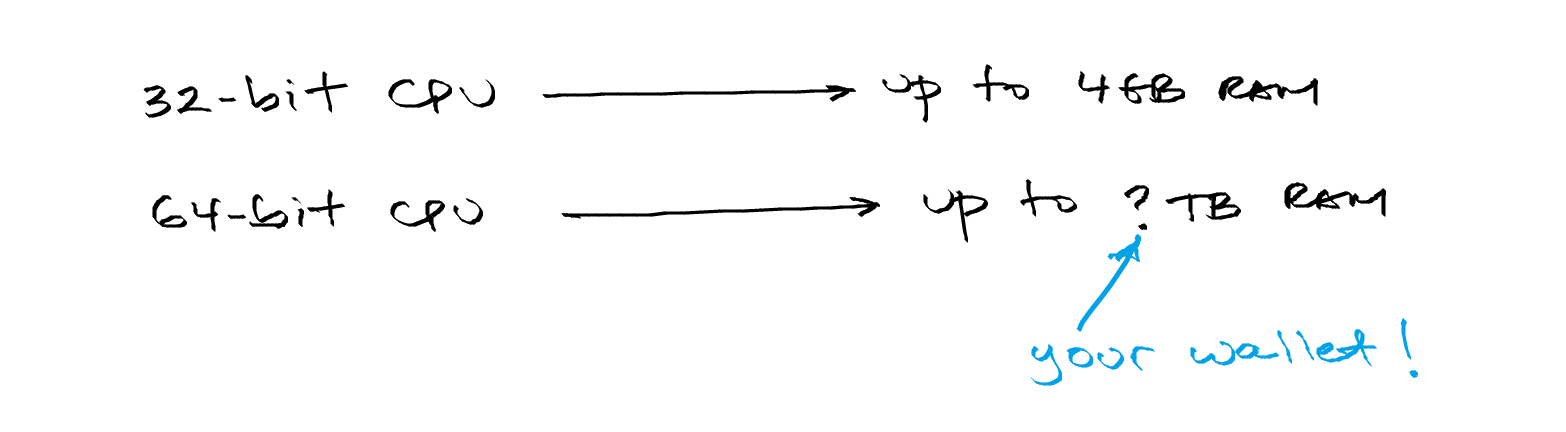 32-bit CPU → up to 4GB RAM
64-bit CPU → up to ? TB RAM
your wallet!